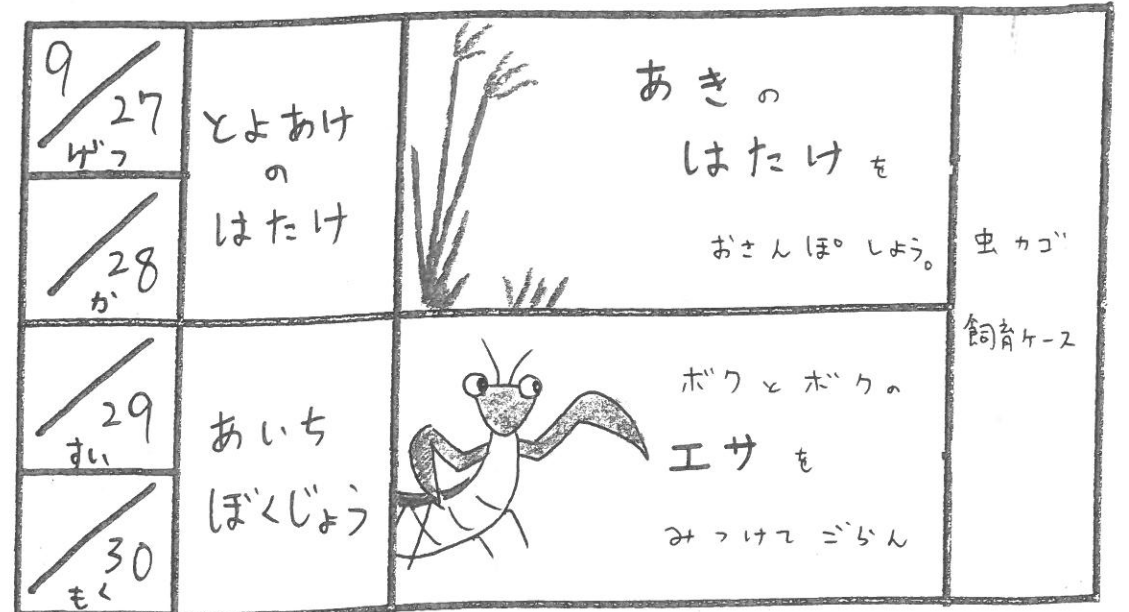 9/27
げつ
/28
か
とよあけ
の
はたけ
あきの
はたけを
おさんぽしょう。
/29
すい
/30
もく
あいち
ぼくじょう
ボクとボクの
エサを
みつけてごらん
虫カゴ
飼育ケース